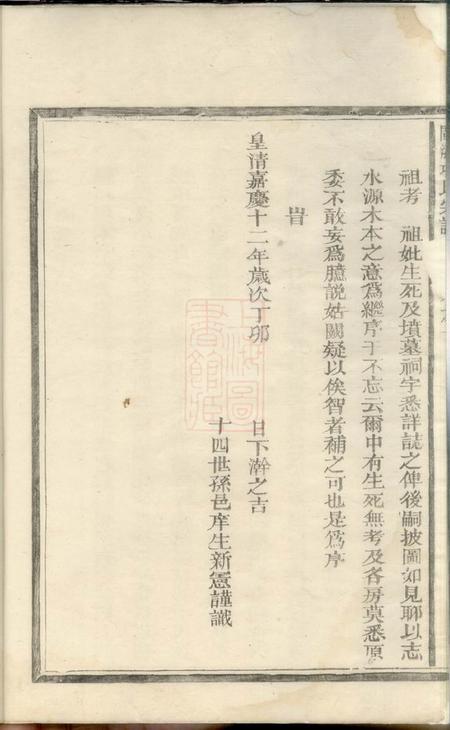 祖考　祖妣生死及墳墓祠宇悉詳誌之俾後嗣披圖如見聊以志
水源木本之意爲繼序于不忘云爾中有生死無考及各房莫悉原
委不敢妄爲臆說姑闕疑以俟智者補之可也是爲序
旹
皇清嘉慶十二年歲次丁卯　　日下澣之吉
十四世孫邑庠生新憲謹識
上海圖
書館藏